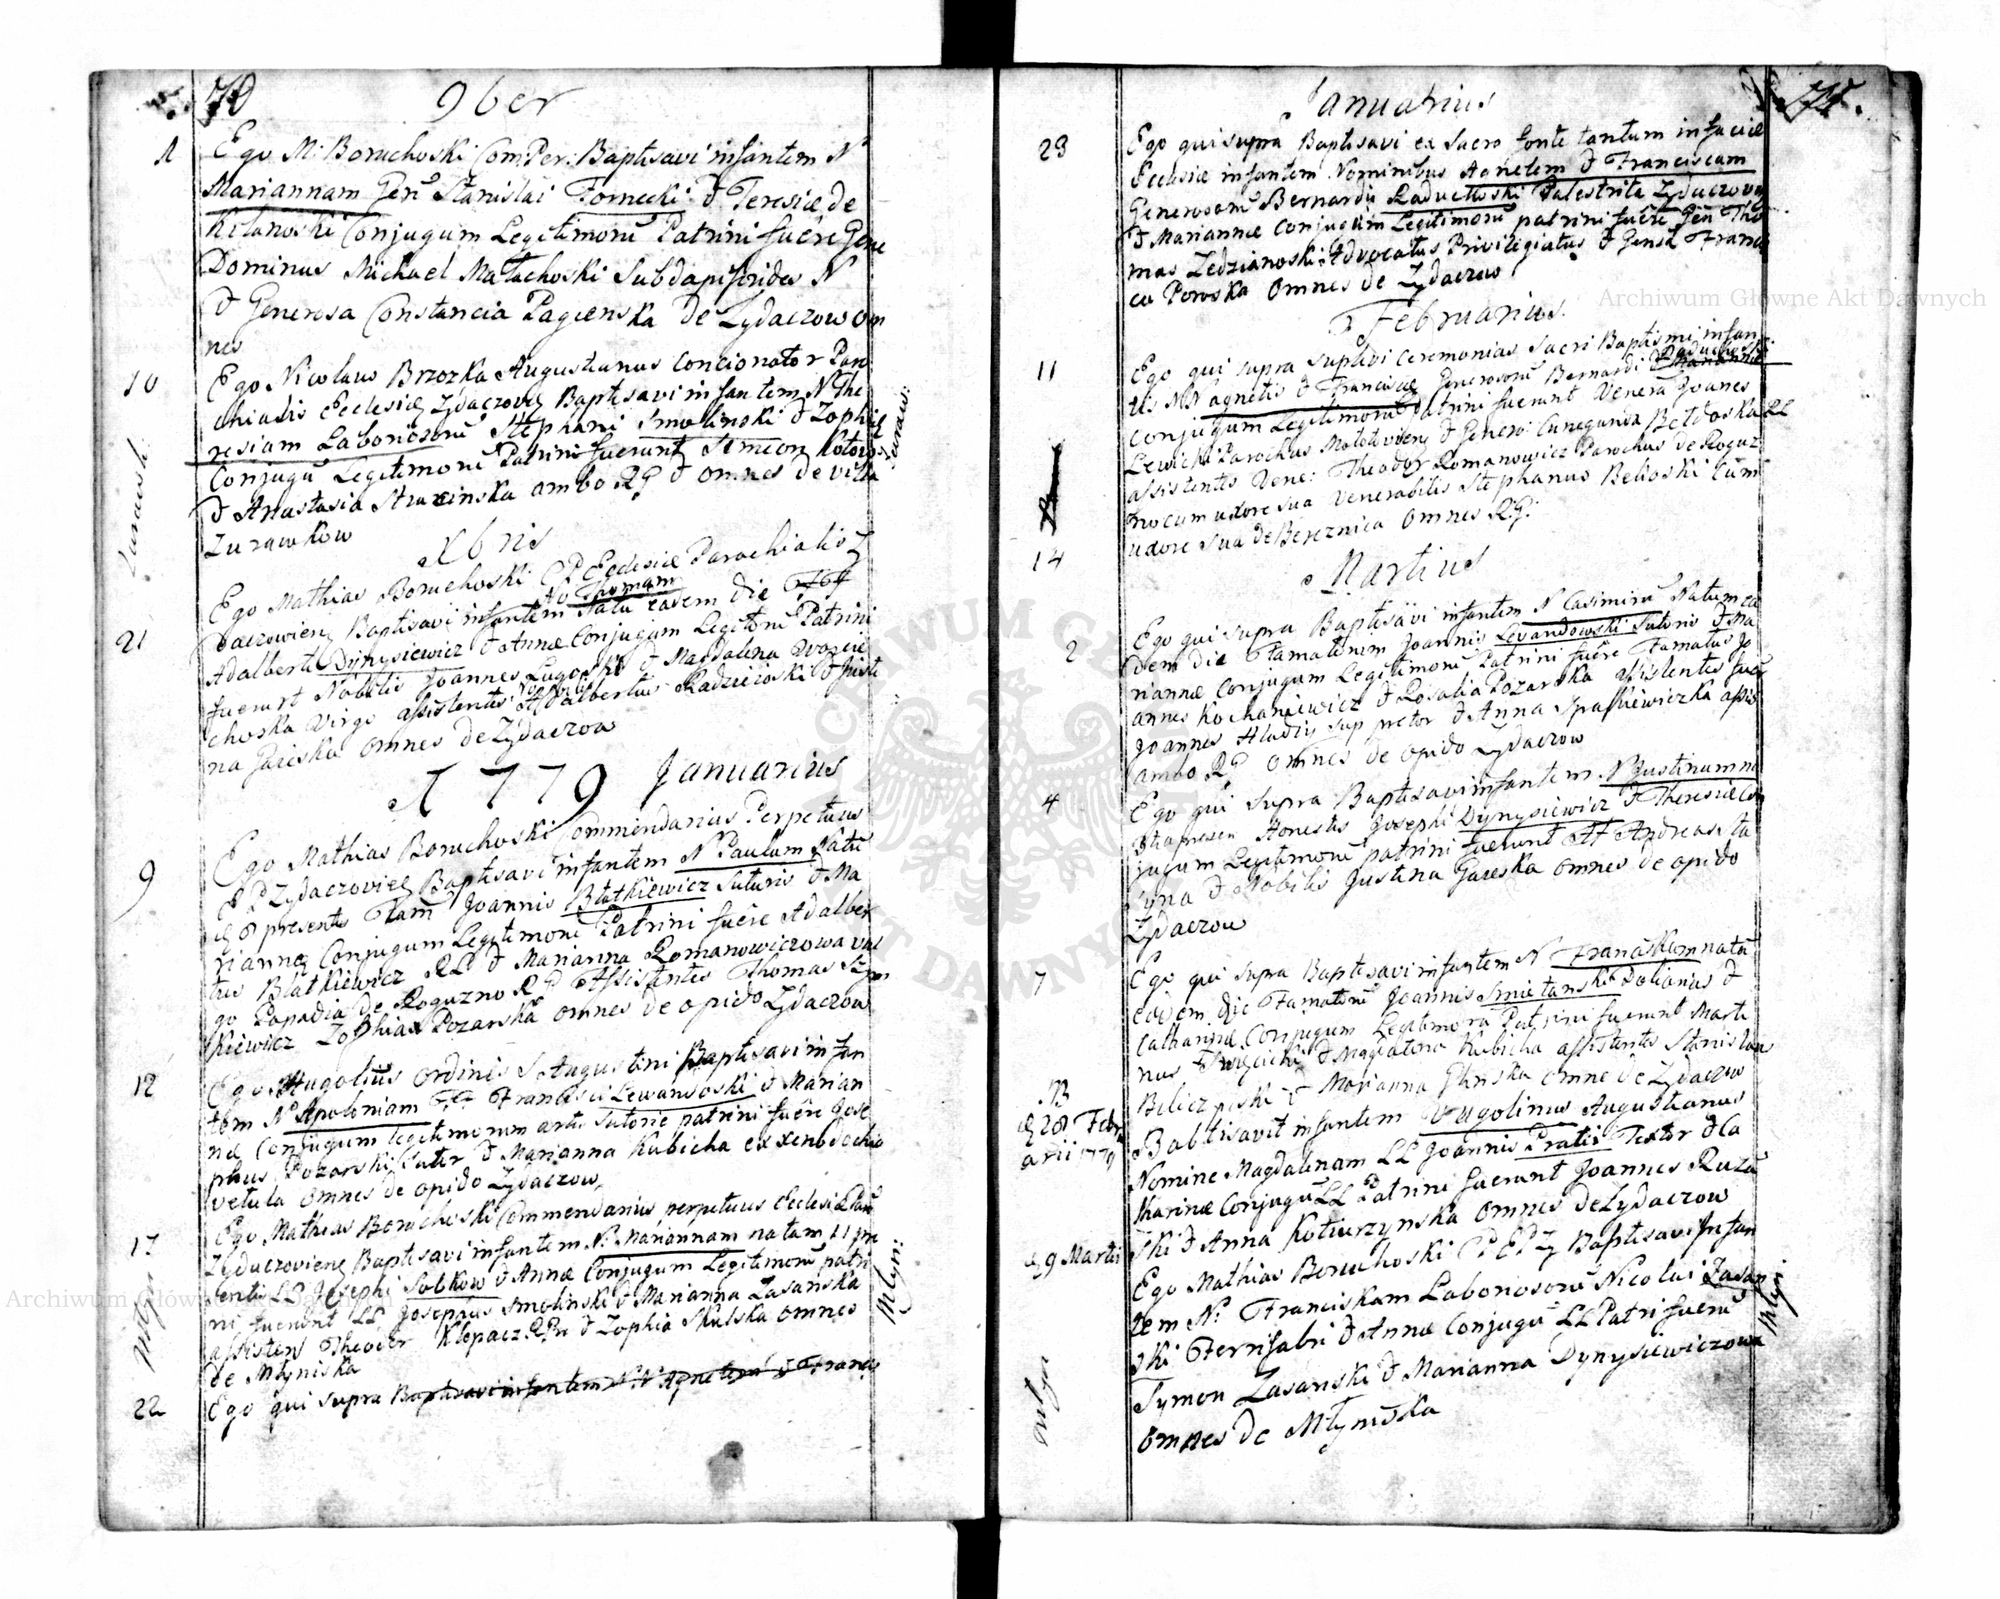 70
9ber
1
Ego M: Boruchoski Com Per: Baptisavi infantem N
Mariannam Gen Stanislai Fornecki & Teresiæ de
Kitanoski Conjugum Legitimorū Patrini fuêre Gene
Dominus Michael Małachoski Subdapiferides N
& Generosa Constancia Pagienska de Zydaczow om
nes
10
Ego Nicolaus Brzozka Augustianus Concionator Par
ochialis Ecclesiæ Zydaczovię Baptisavi infantem N The
resiam Laboriosorū Stephani Smolinski & Zophiæ
Conjugū Legitimorū Patrini fuerunt Simeon
& Anastasia Strucinska ambo RG & omnes de villa
Zurawkow
Zurawk:
Zuraw:
Xbris
21
Ego Mathias Boruchoski CP Ecclesiæ Parochialis Z
ydaczowienę Baptisavi infantem No Thomam Natū eadem die
Adalberti Dynysiewicz & Annæ Conjugum Legitimē Patrini
fuerunt Nobilis Joannes Lugoski & Magdalena
choska Virgo assistentes Nobilis Adalbertus Radzieioski & Justi
na Gareska omnes de Zydaczow
1779 Januarius
9
Ego Mathias Boruchoski Commendarius Perpetuus
EP Zydaczovieę Baptisavi infantem N Paulum Natū
8 presentis Fam Joannis Błatkiewicz Sutoris & Ma
rianneę Conjugum Legitimorū Patrini fuêre Adalber
tus Blatkiewicz RL & Marianna Romanowiczowa vul
go Papadia de Roguzno RG Assistentes Thomas
kiewicz Zophia Pozarska omnes de opido Zydaczow
12
Ego Hugolius Ordinis S Augustini Baptisavi infan
tem N Apoloniam Francisci Lewansoski & Marian
næ Conjugum legitimorum artis Sutoriæ patrini fuêre Jose
phus Pozarski Sutor & Marianna Kubicha ex xenodochio
vetula omnes de opido Zydaczow
17
Ego Mathias Boruchoski Commendarius perpetuus Ecclesiæ Par
Zyduczovienę Baptisavi infantem N: Mariannam natam 11 pre
sentis LL Josephi Sobkow & Annæ Conjugum Legitimorū patri
ni fuerunt LL Josephus Smolinski & Marianna Zasanska
assisten Theodor Klepacz RR & Zophia Skulska omnes
de Młyniska
Młyn:
22
Ego qui supra Baptisavi infantem N N Agnetem & Francis
71
Januarius
23
Ego qui supra Baptisavi ex Sacro fonte tantum in facie
Ecclesiæ infantem Nominibus Agnetem & Franciscam
Generosorū Bernardi Raduchoski Palestritæ Zydaczovę
& Mariannæ Conjugum Legitimorū patrini fuêre Gen Tho
mas Zedzianoski Advocatus Privilegiatus & Gensa Francis
ca Poroska Omnes de Zydaczow
Februarius
11
Ego qui supra Suplevi Ceremonias Sacri Baptismi infan
tis NN agnetis & Franciscæ Generosorū Bernardi Raduchoski & Mariannæ
Conjugum Legitimorū Patrini fuerunt Venera Joanes
Lewicki Parochus Mototovienę & Genero: Cunegunda Bełdoska RL
assistentes Vene: Theodor Romanowicz Parochus de Roguz
no cum uxore sua Venerabilis Stephanus Belioski cum
uxore sua de Bereznica omnes RG:
14
Martius
2
Ego qui supra Baptisavi infantem N Casimirū Natum ea
dem die Famatorum Joannis Levandowski Sutoris & Ma
riannæ Conjugum Legitimorū Patrini fuêre Famatus Jo
annes Kochaniewicz & Rosalia Pozarska assistentes fuer
Joannes Hladiy sup pretor & Anna Spaskiewiczka assis
ambo RG omnes de opido Zydaczow
4
Ego qui supra Baptisavi infantem N Justinum na
Honestis Josephi Dynysiewicz & Theresiæ Con
jugum Legitimorū patrini fuerunt Andreas
& Nobilis Justina Gareska omnes de opido
Zydaczow
7
Ego qui supra Baptisavi infantem N Franciskam natā
eodem die Famatorū Joannis Smietanski & 
Catharinæ Conjugum Legitimorū Patrini fuerunt Marti
nus & Magdalena Kubicha assistentes Stanislaus
& Marianna Glinska omne de Zydaczow
NB
28 Febru
arii 1779
Babtisavit infantem Vugolinus Augustianus
Nomine Magdalenam LL Joannis Pratis Textor & Ca
tharinæ Conjugū LL Patrini fuerunt Joannes Ruza
ski & Anna Koturzynska omnes de Zydaczow
9 Martis
Ego Mathias Boruchoski CP EPZ Baptisavi infan
tem N: Franciskam Laboriosorū Nicolai Zasan
ski Ferrifabri & Annæ Conjugū LL Patri fuerū
Symon Zasanski & Marianna Dynysiewiczowa
omnes de Młyniska
Młyn
Archiwum Główne Akt Dawnych
Archiwum Główne Akt Dawnych
ARCHIWUM GŁÓWNE AKT DAWNYCH